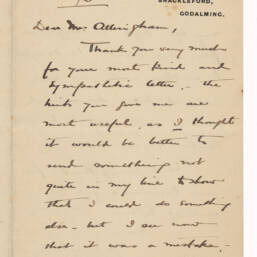 SHACKLEFORD,
GODALMING.
Dear Mrs Allingham,
Thank you very much
for your most kind and
sympathetic letter. the
hints you give me are
most useful, as I thought
it would be better to
send something not
quite in my line to show
that I could do something
else - but I see now
that it was a mistake -